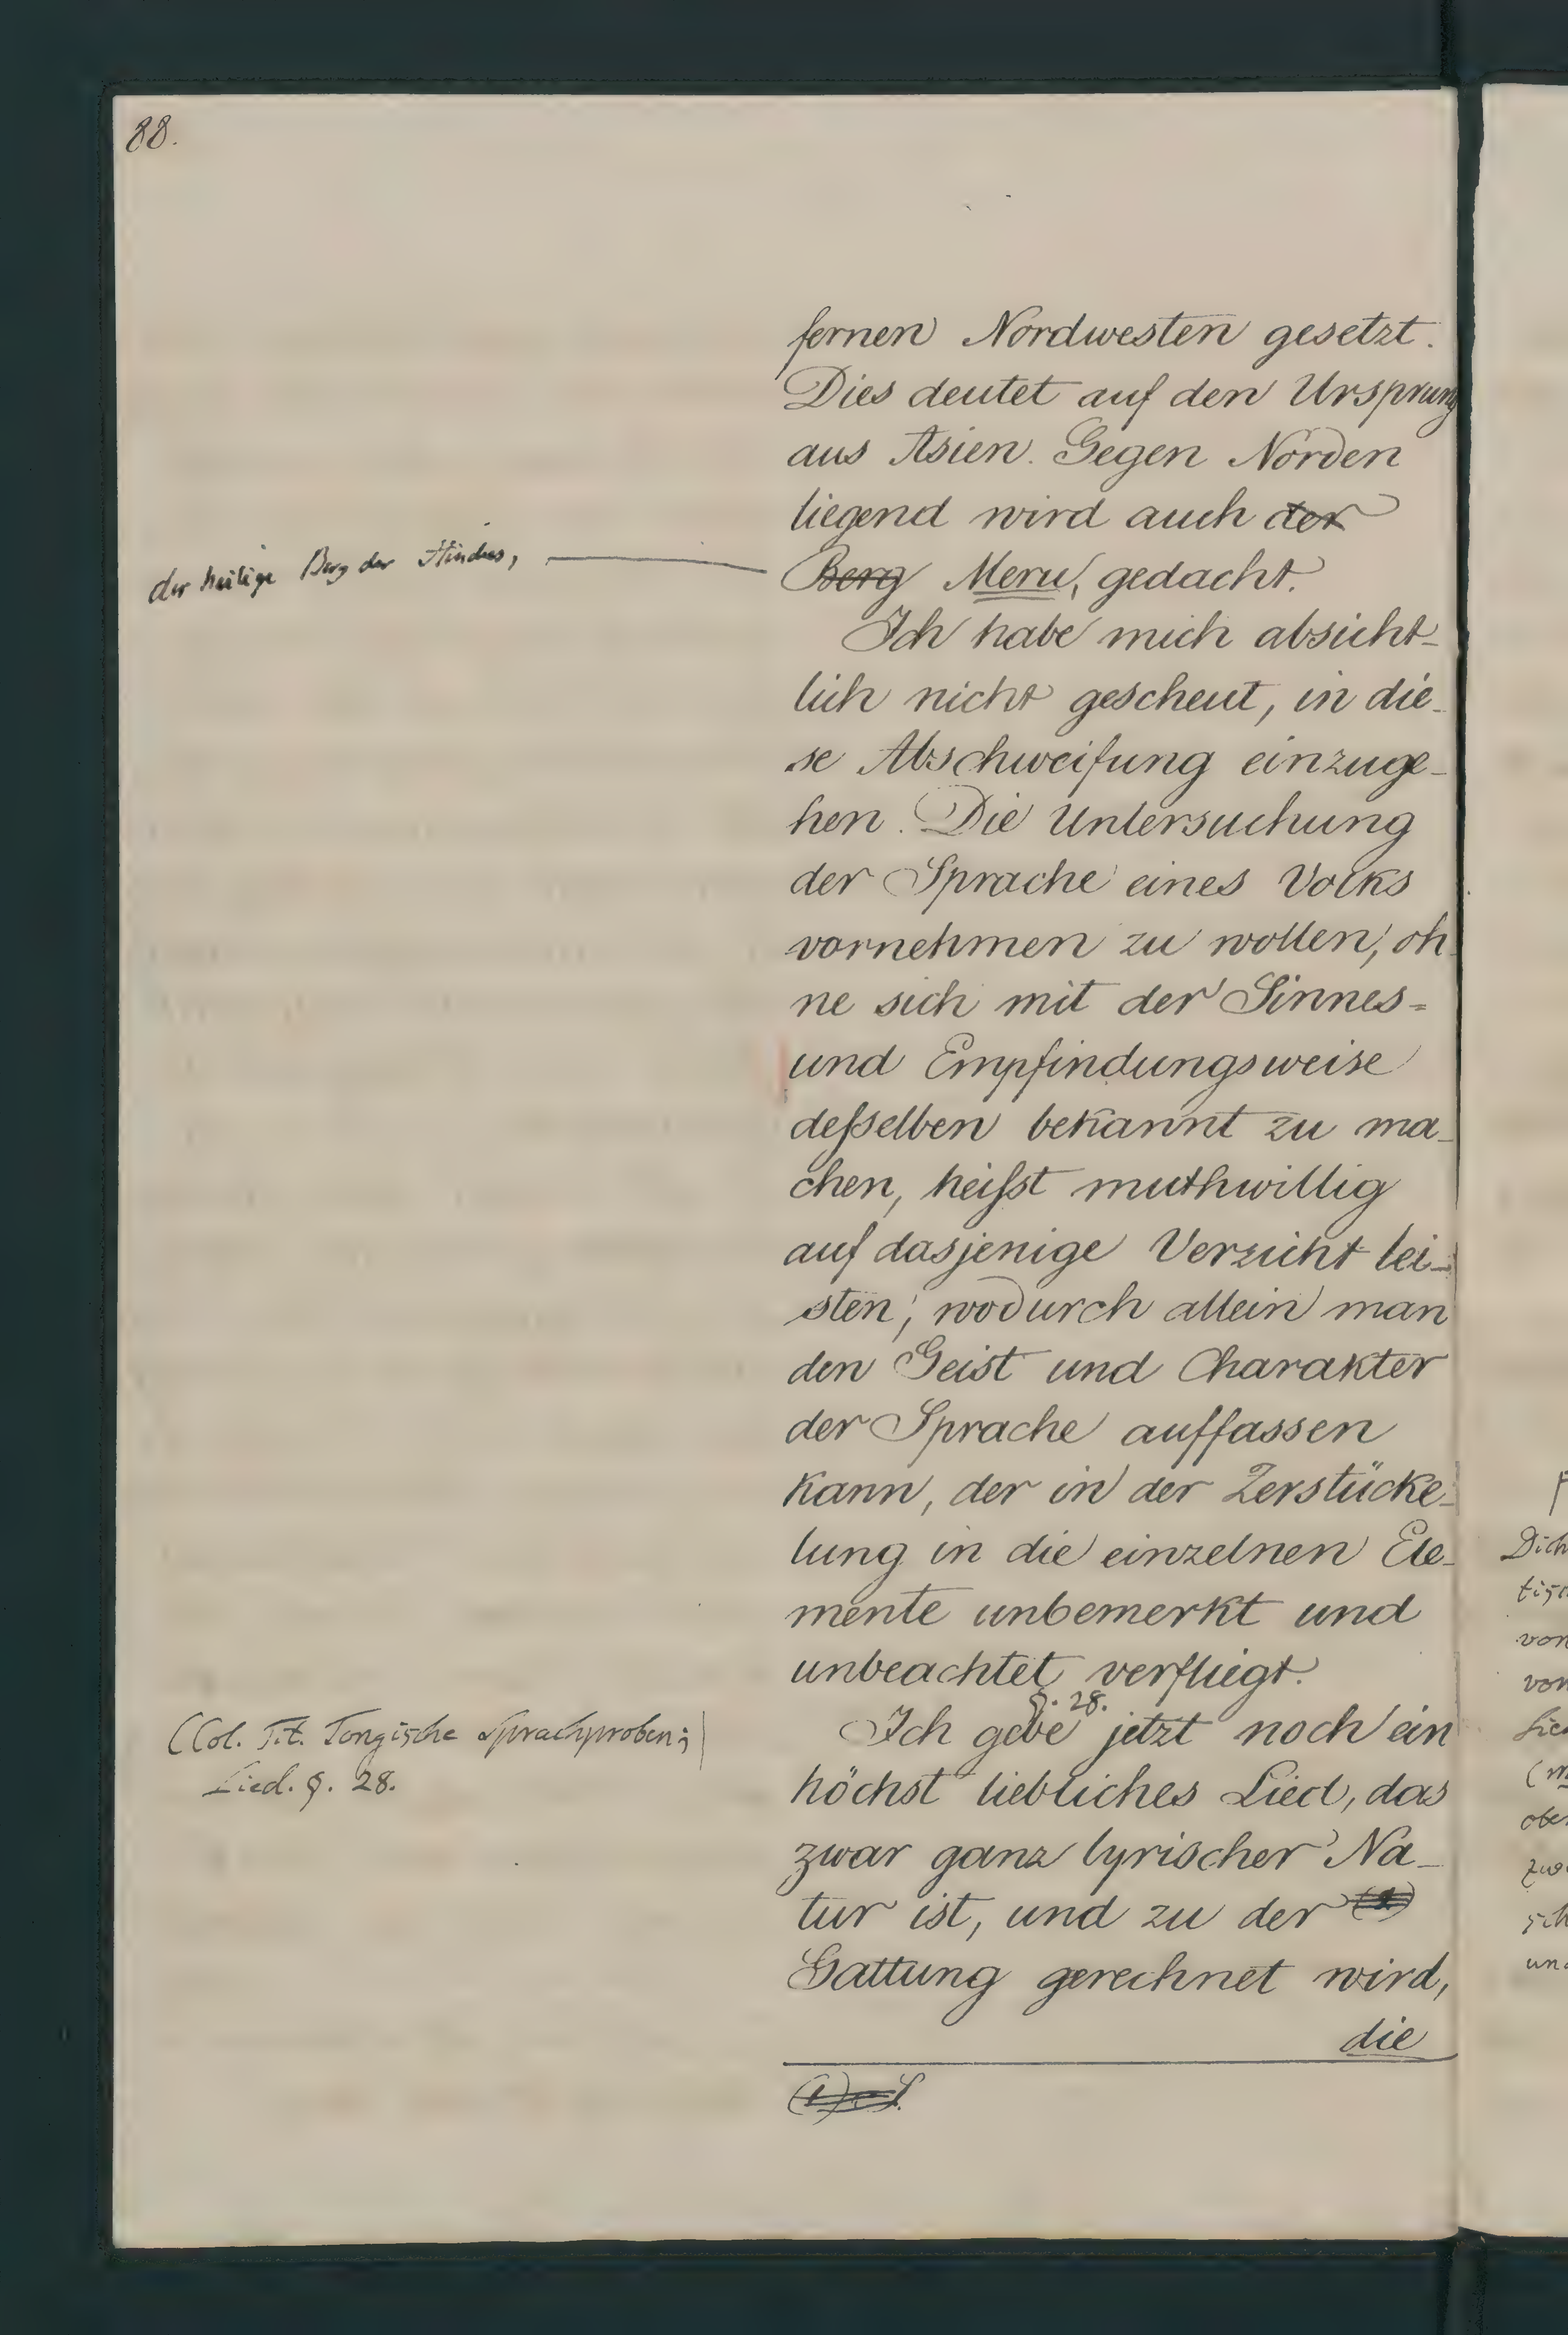 88.
fernen Nordwesten gesetzt.
Dies deutet auf den Ursprung
aus Asien. Gegen Norden
liegend wird auch der
der heilige Berg der Hindus,
Berg Meru, gedacht.
Ich habe mich absicht-
lich nicht gescheut, in die-
se Abschweifung einzuge-
hen. Die Untersuchung
der Sprache eines Volks
vornehmen zu wollen, oh-
ne sich mit der Sinnes-
und Empfindungsweise
deßselben bekannt zu ma-
chen, heißt muthwillig
auf dasjenige Verzicht lei-
sten, wodurch allein man
den Geist und Charakter
der Sprache auffassen
kann, der in der Zerstücke-
lung in die einzelnen Ele-
mente unbemerkt und
unbeachtet verfliegt.
§. 28.
Ich gebe jetzt noch ein
(Col. Tit. Tongische Sprachproben;
Lied. §. 28.
höchst liebliches Lied, das
zwar ganz lyrischer Na-
tur ist, und zu der (1)
Gattung gerechnet wird,
die
(1)
Dich
von
von
und